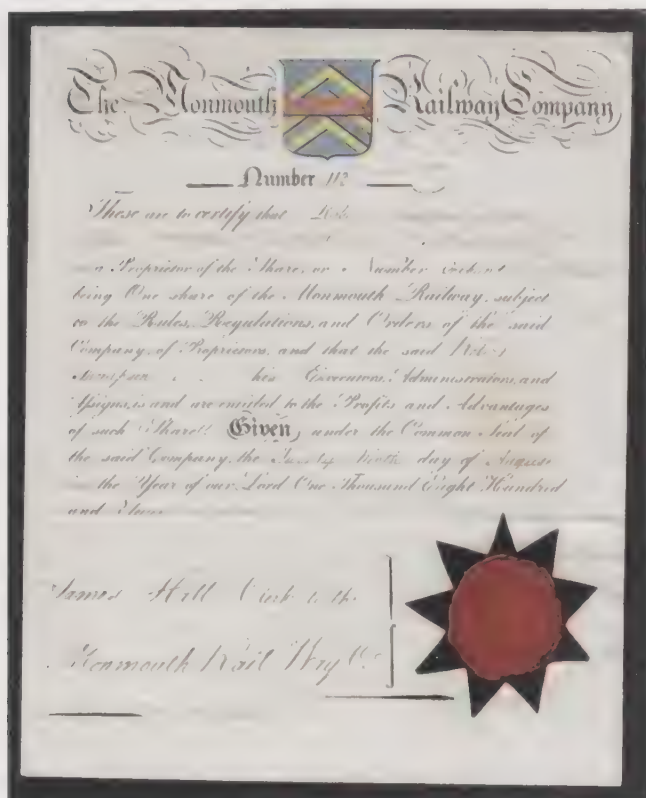 The Monmouth Railway Company
Number 112
These are to certify that
a Proprietor of the Share, or Number
being One share of the Monmouth Railway, subject
to the Rules, Regulations, and Orders of the said
Company of Proprietors, and that the said
his Executors, Administrators, and
Assigns, is and are entitled to the Profits and Advantages
of such Share. Given, under the Common Seal of
the said Company, the Twenty Ninth day of August
in the Year of our Lord One Thousand Eight Hundred
and
James Hall Clerk to the
Monmouth Rail Way Co